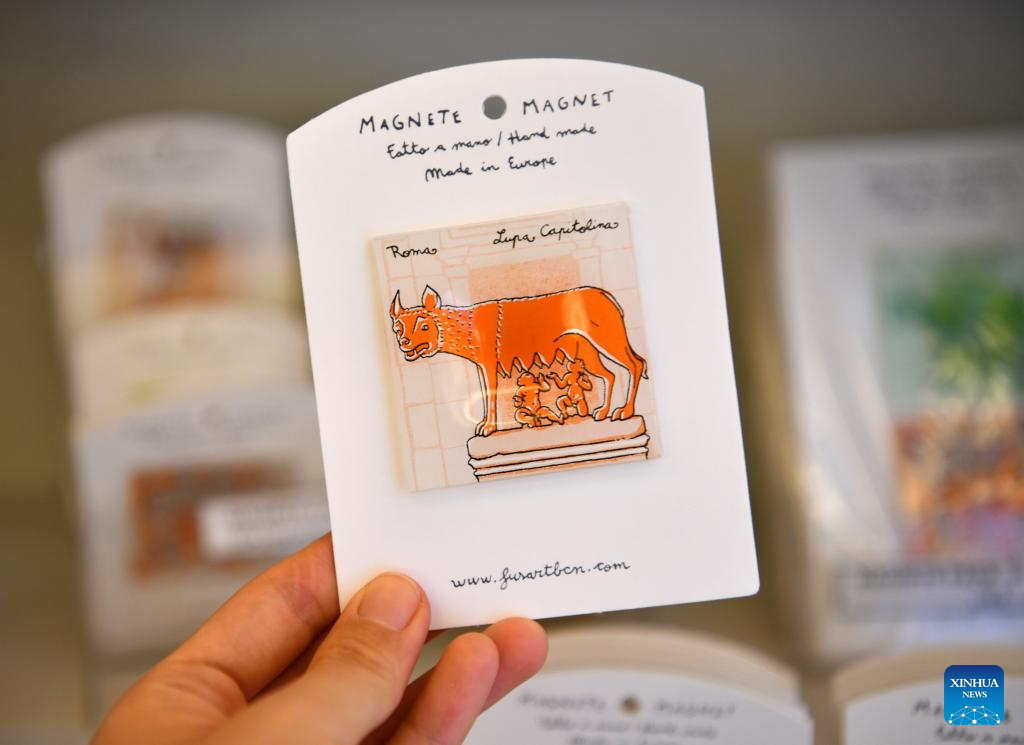 MAGNETE MAGNET
Fatto a mano / Hand made
Made in Europe
Roma Lupa Capitolina
www.fusartbcn.com
XINHUA
NEWS